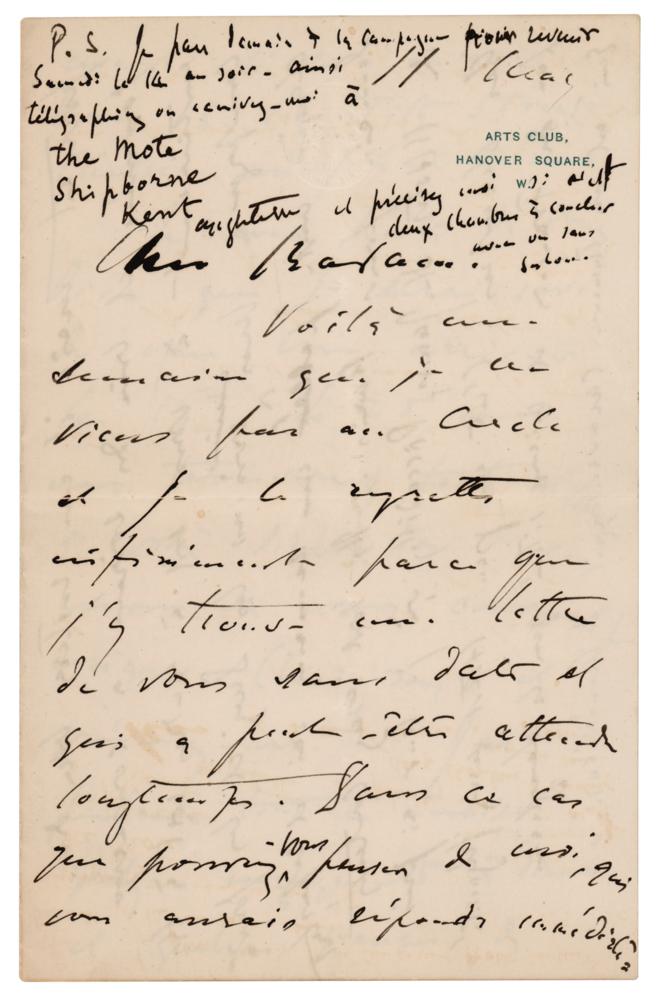 P. S. Je pars demain à la campagne pour revenir
Samedi le 14 au soir - ainsi
télégraphiez ou écrivez-moi à
the Mote
Shipborne
Kent Angleterre et précisez moi si
deux chambres à coucher
avec un sans
salon.
11 May
ARTS CLUB,
HANOVER SQUARE,
W.
Cher
Voilà une
semaine que je ne
viens pas au Cercle
et je le regrette
infiniment parce que
j'y trouve une lettre
de vous sans date et
qui a peut-être attendu
longtemps. Dans ce cas
que pourriez vous penser de moi, qui
vous aurais répondu immédiate